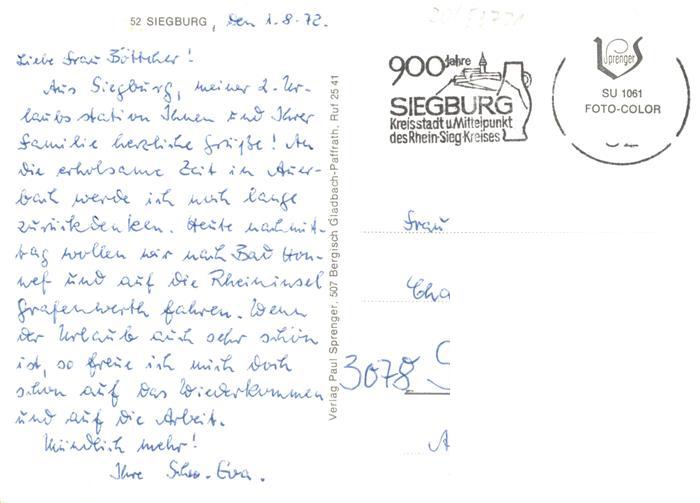 52 SIEGBURG, den 1.8.72.
Liebe Frau Böttcher!
Aus Siegburg, meiner 2. Ur-
laubsstation Ihnen und Ihrer
Familie herzliche Grüße! An
die erholsame Zeit in Auer-
bach werde ich noch lange
zurückdenken. Heute nachmit-
tag wollen wir nach Bad Hon-
nef und auf die Rheininsel
Grafenwerth fahren. Wenn
der Urlaub auch sehr schön
ist, so freue ich mich doch
schon auf das Wiederkommen
und auf die Arbeit.
Mündlich mehr!
Ihre Schw. Eva.
Verlag Paul Sprenger, 507 Bergisch Gladbach-Paffrath, Ruf 25 41
900 Jahre
SIEGBURG
Kreisstadt u. Mittelpunkt
des Rhein-Sieg-Kreises
Sprenger
SU 1061
FOTO-COLOR
Frau
Cha
3078 S
A